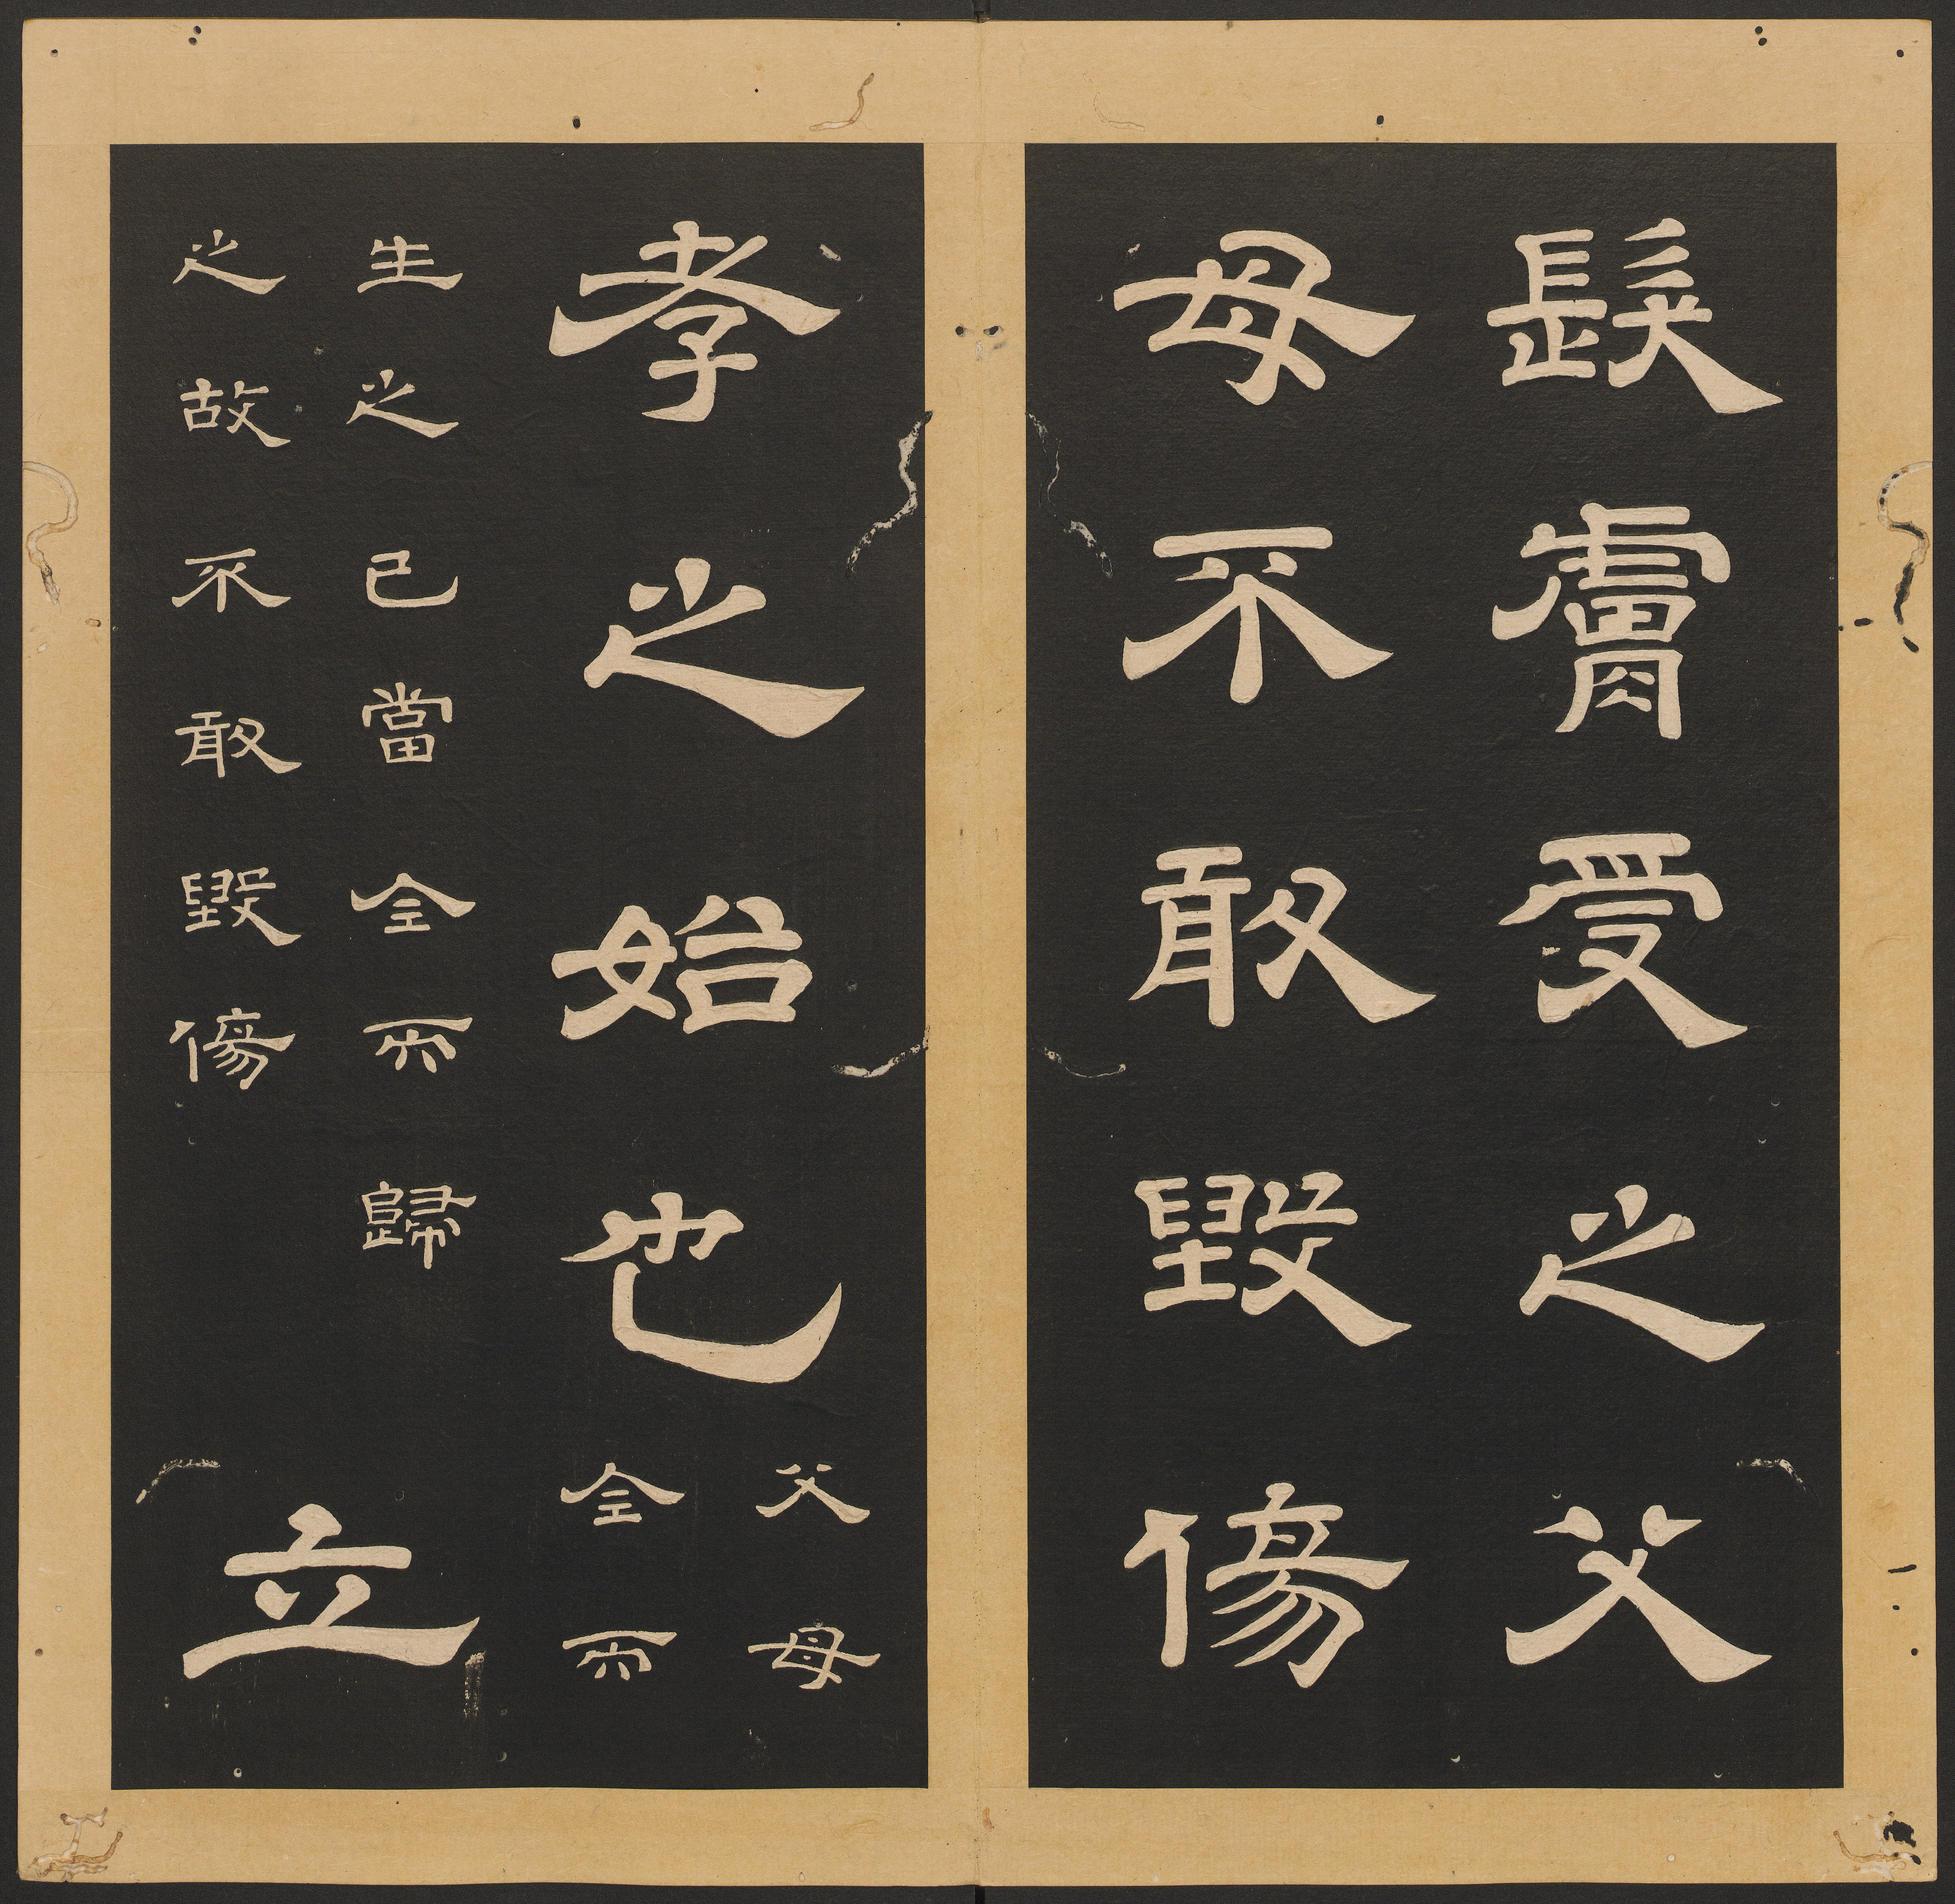 髮膚受之父
母不敢毀傷
孝之始也
父母
全而
生之己當全而歸
之故不敢毀傷
立